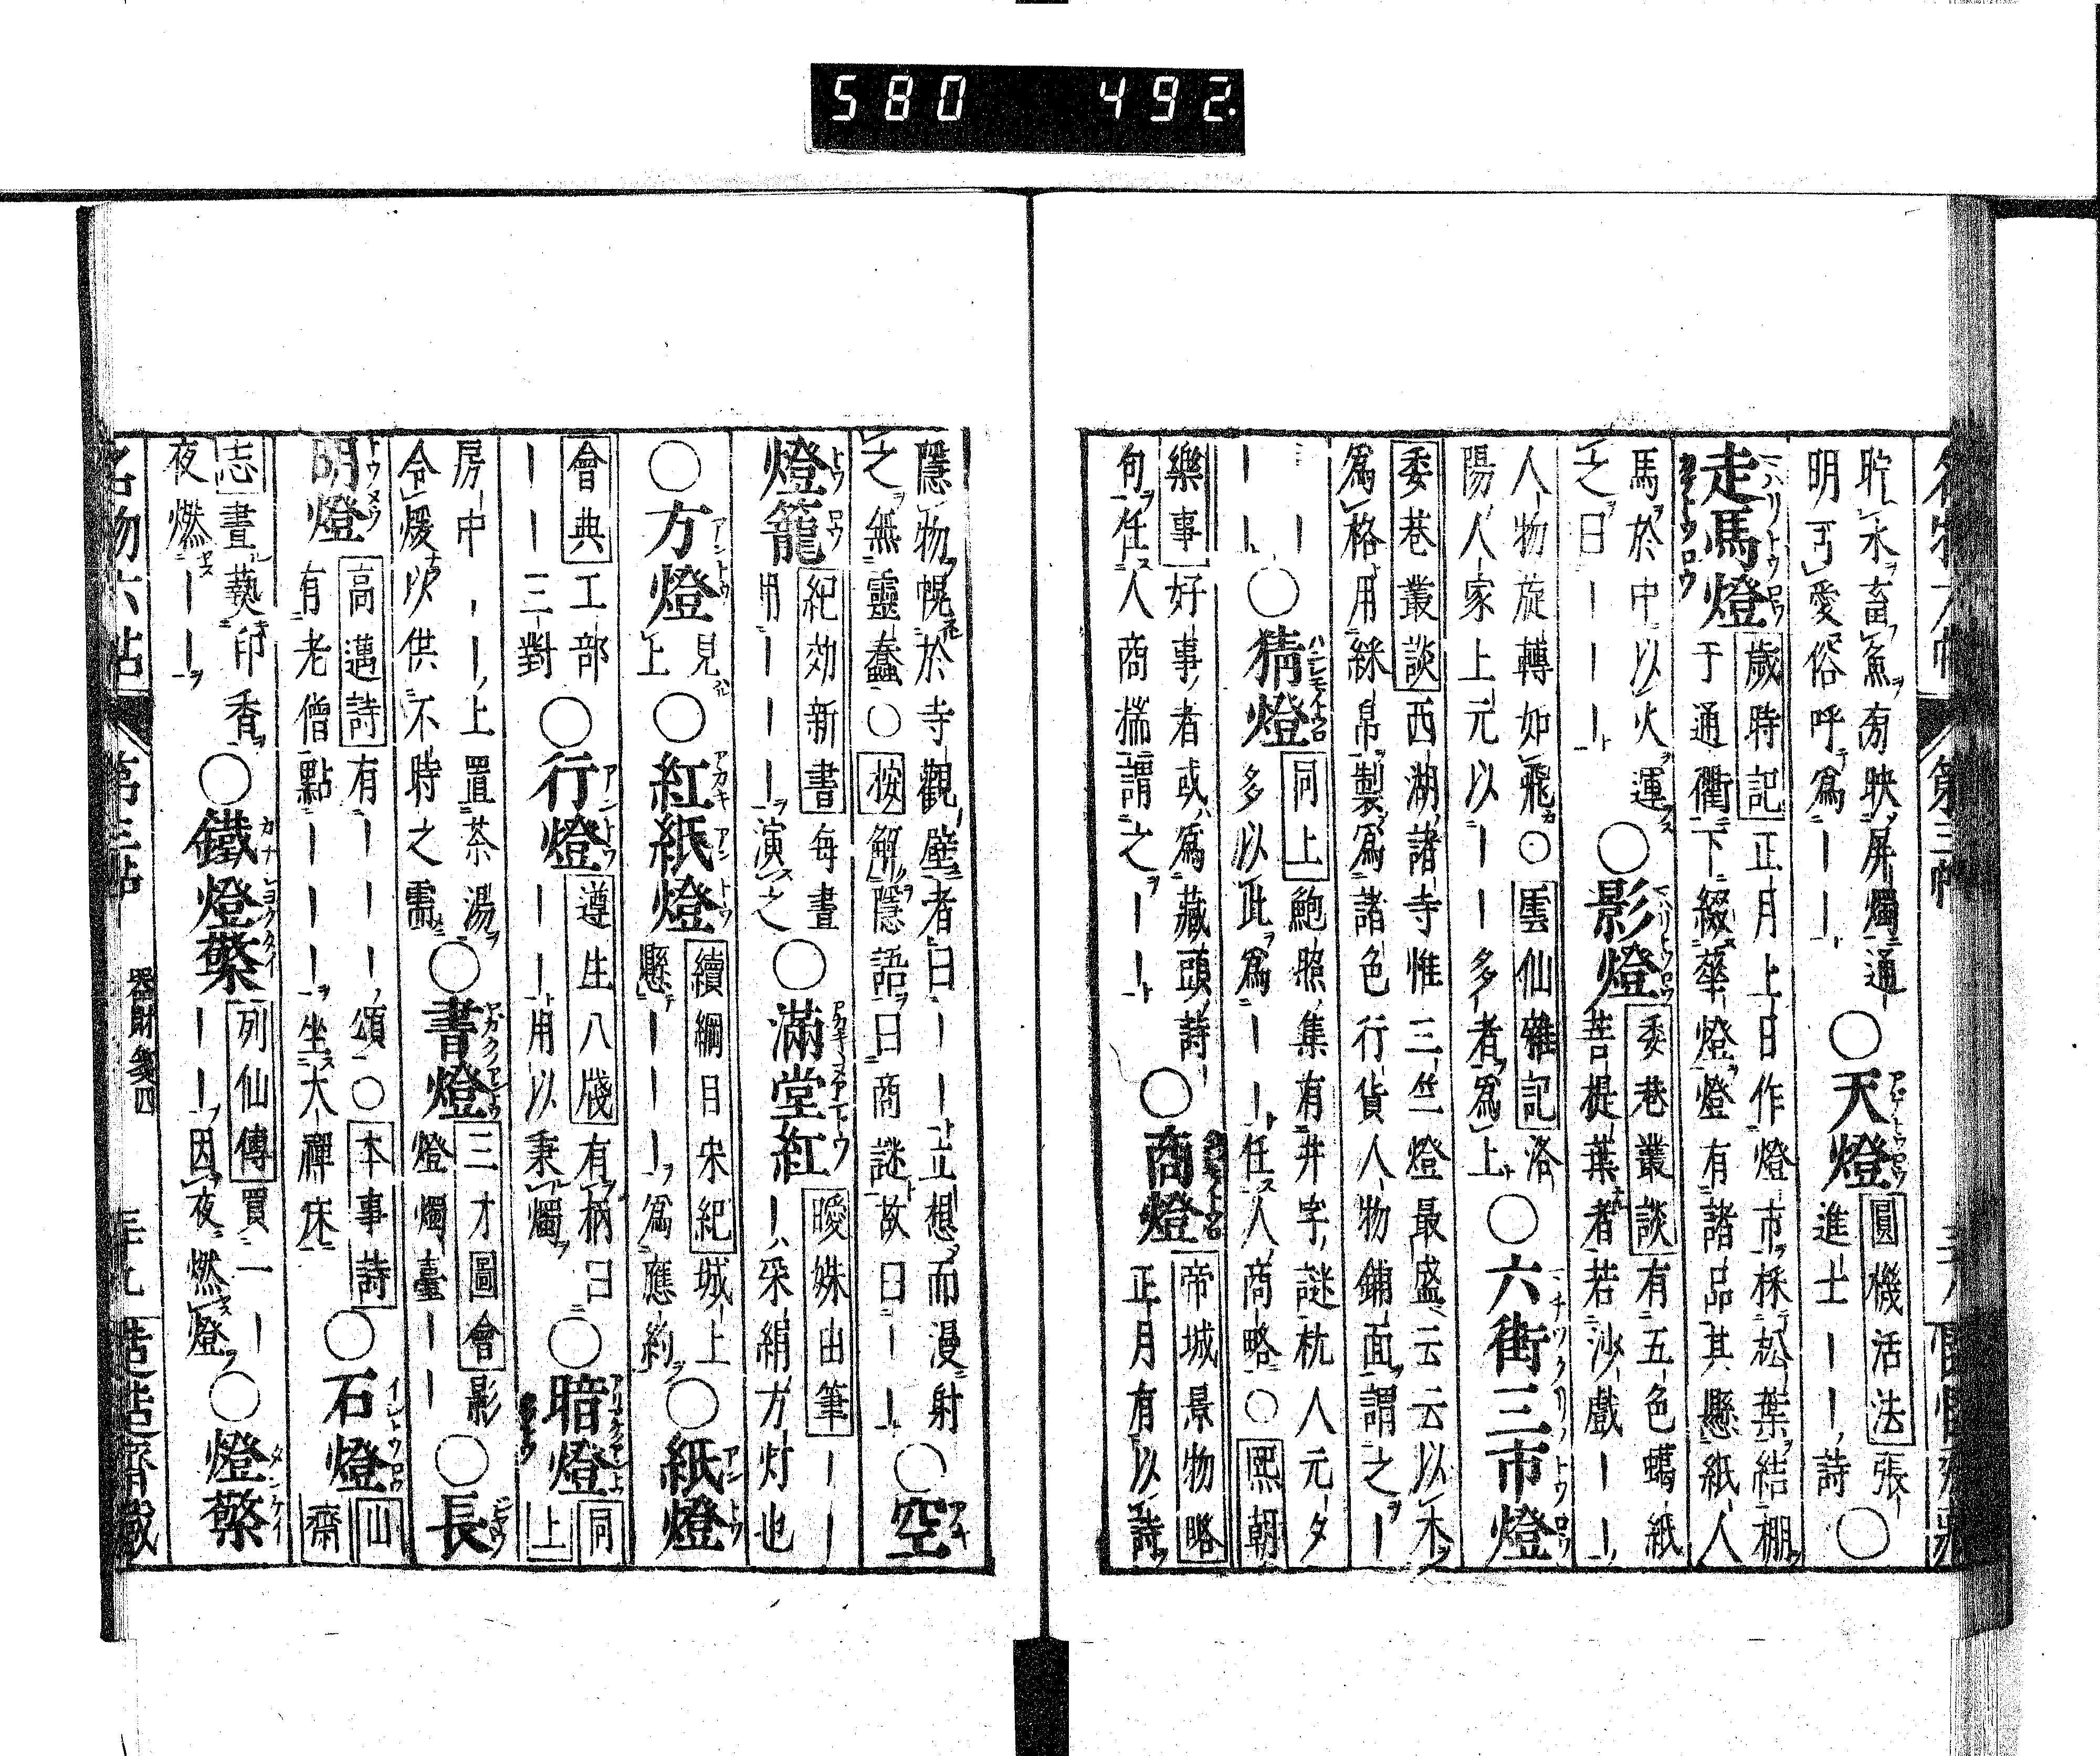 580 492
貯水畜魚㫄映屏燭通
明可愛俗呼爲｜｜
○天燈
圓機活法張
進士｜｜詩
○
走馬燈
歲時記正月上日作燈市採松葉結棚
于通衢下綴華燈燈有諸品其懸紙人
馬於中以火運
之曰｜｜｜
○影燈
委巷叢談有五色蠟紙
菩提葉者若沙戲｜｜
人物旋轉如飛○雲仙雜記洛
陽人家上元以｜｜多者爲上
○六街三市燈
委巷叢談西湖諸寺惟三竺燈最盛云云以木
爲格用綵帛製爲諸色行貨人物鋪面謂之｜
｜｜
○猜燈
同上鮑照集有井字謎杭人元夕
多以此爲｜｜任人商略○熙朝
樂事好事者或爲藏頭詩
句任人商揣謂之｜｜
○商燈
帝城景物略
正月有以詩
隱物幌於寺觀壁者曰｜｜立想而漫射
之無靈蠢○按解隱語曰商謎故曰｜｜
○空
燈籠
紀効新書每晝
用｜｜｜演之
○滿堂紅
曖姝由筆｜｜
｜采絹方灯也
○方燈
見
上
○紅紙燈
續綱目宋紀城上
懸｜｜｜爲應約
○紙燈
會典工部
｜｜三對
○行燈
遵生八牋有柄曰
｜｜用以秉燭
○暗燈
同
上
房中｜｜上置茶湯
令煖以供不時之需
○書燈
三才圖會影
燈燭臺｜｜
○長
明燈
高適詩有｜｜｜頌○本事詩
有老僧點｜｜｜坐大禪床
○石燈
山
齋
志晝爇印香
夜燃｜｜
○鐵燈檠
列仙傳買一｜
｜｜因夜燃燈
○燈檠
名物六帖
第三帖
器財箋四
三十九